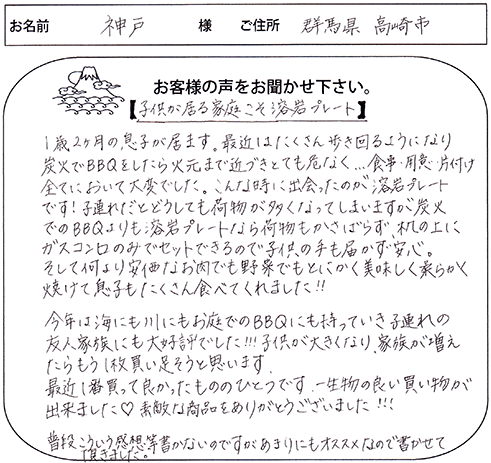 お名前 神戸 様 ご住所 群馬県 高崎市
お客様の声をお聞かせ下さい。
【子供が居る家庭こそ溶岩プレート】
1歳2ヶ月の息子が居ます。最近はたくさん歩き回るようになり
炭火でBBQをしたら火元まで近づきとても危なく…食事・用意・片付け
全てにおいて大変でした。こんな時に出会ったのが溶岩プレート
です！子連れだとどうしても荷物が多くなってしまいますが炭火
でのBBQよりも溶岩プレートなら荷物もかさばらず、机の上に
ガスコンロのみでセットできるので子供の手も届かず安心。
そして何より安価なお肉でも野菜でもとにかく美味しく柔らかく
焼けて息子もたくさん食べてくれました!!
今年は海にも川にもお庭でのBBQにも持っていき子連れの
友人家族にも大好評でした!!!子供が大きくなり、家族が増え
たらもう1枚買い足そうと思います。
最近1番買って良かったもののひとつです。一生物の良い買い物が
出来ました♡素敵な商品をありがとうございました!!!
普段こういう感想等書かないのですがあまりにもオススメなので書かせて
頂きました。